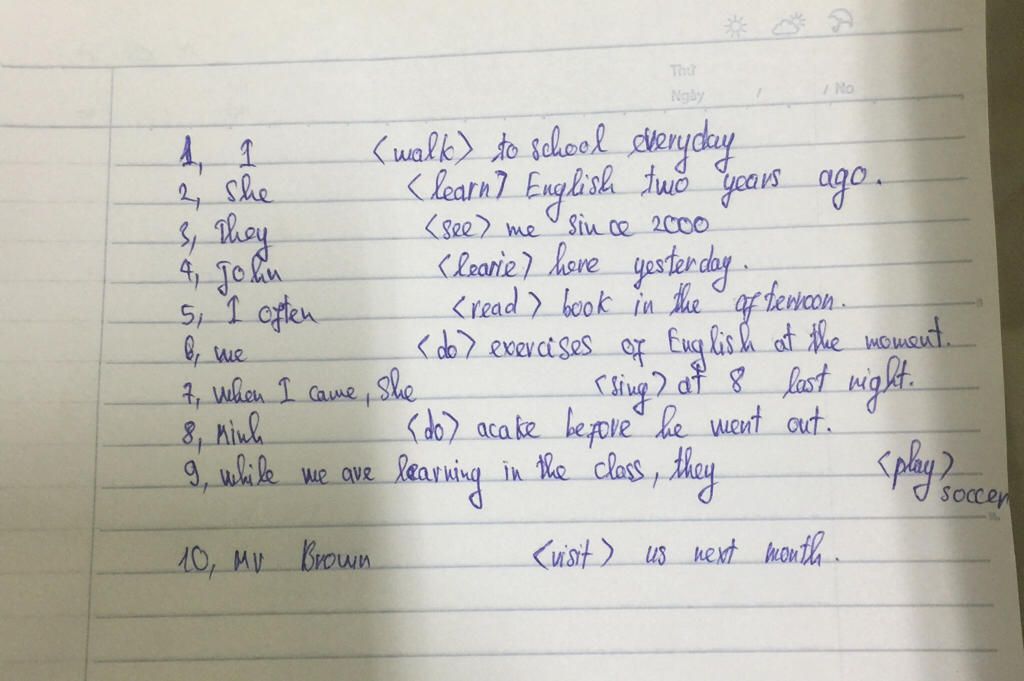 Thứ
Ngày / / No
1, I <walk> to school everyday
2, She <learn> English two years ago.
3, They <see> me since 2000
4, John <learie> here yesterday.
5, I often <read> book in the afternoon.
6, we <do> exercises of English at the moment.
7, when I came, She <sing> at 8 last night.
8, Minh <do> acake before he went out.
9, while we are learning in the class, they <play>
soccer
10, Mr Brown <visit> us next month.